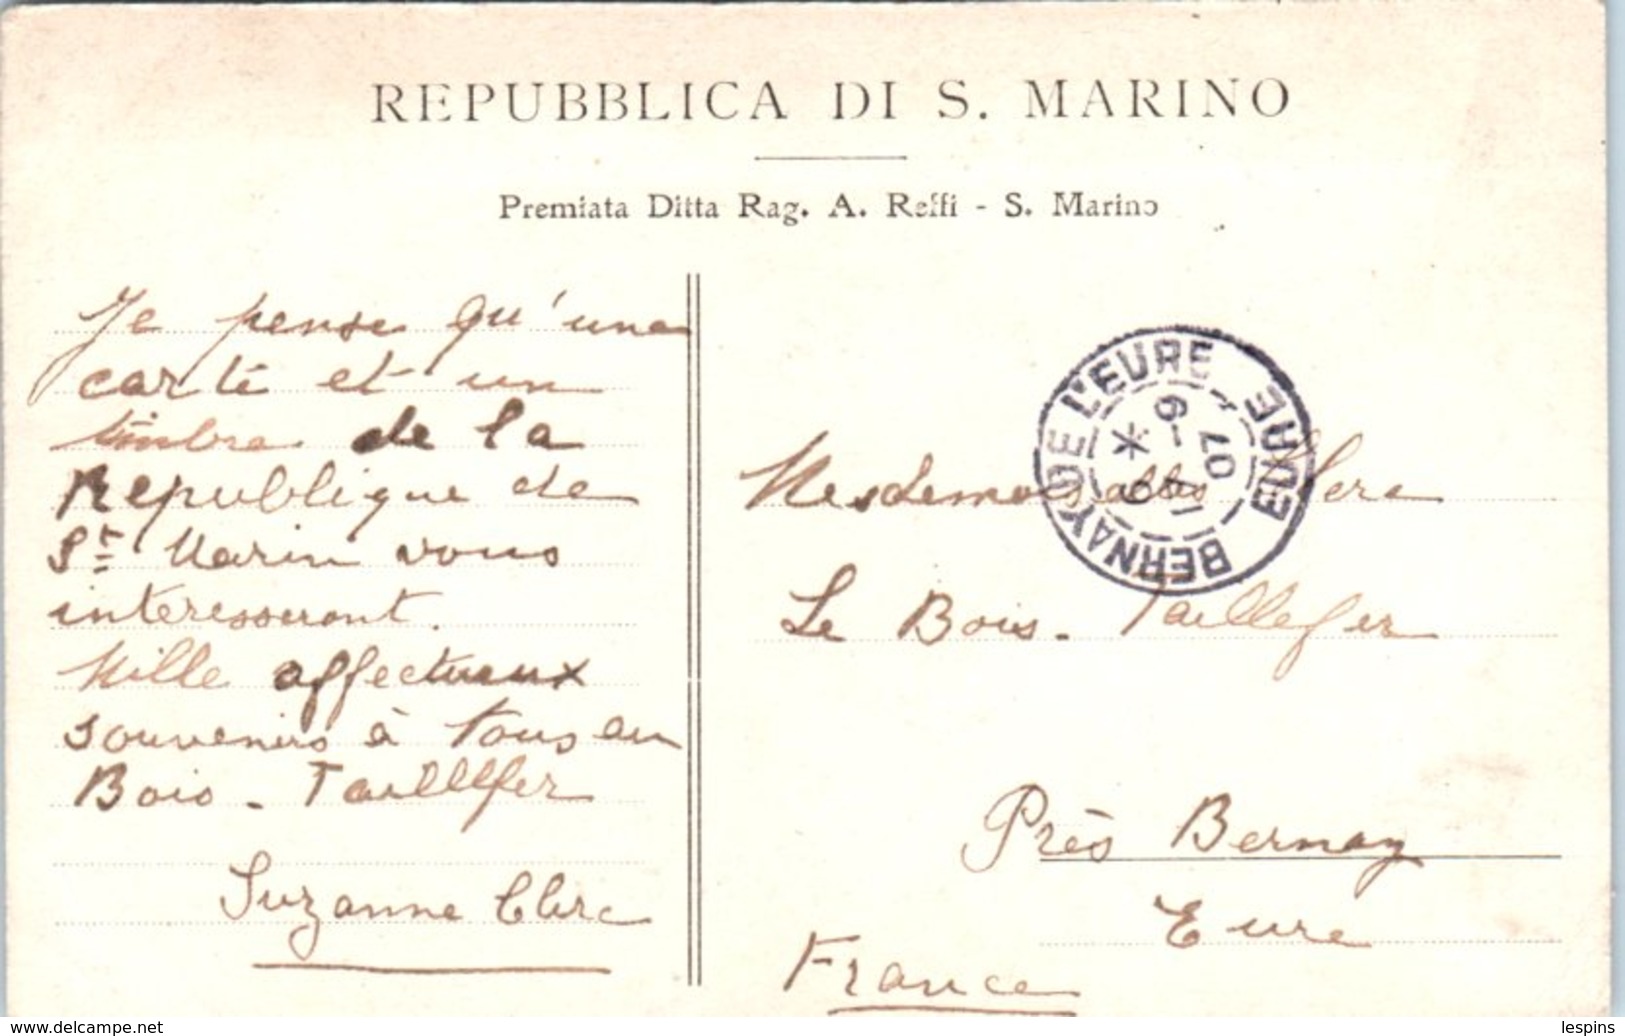 REPUBBLICA DI S. MARINO
Premiata Ditta Rag. A. Reffi - S. Marino
Je pense qu'une
carte et un
timbre de la
République de
St Marin vous
intéresseront.
Mille affectueux
souvenirs à tous au
Bois - Taillefer
Suzanne Clerc
BERNAY DE L'EURE EURE
9 - 4
07
Mesdemoiselles Clerc
Le Bois - Taillefer
Près Bernay
Eure
France
www.delcampe.net
lespins